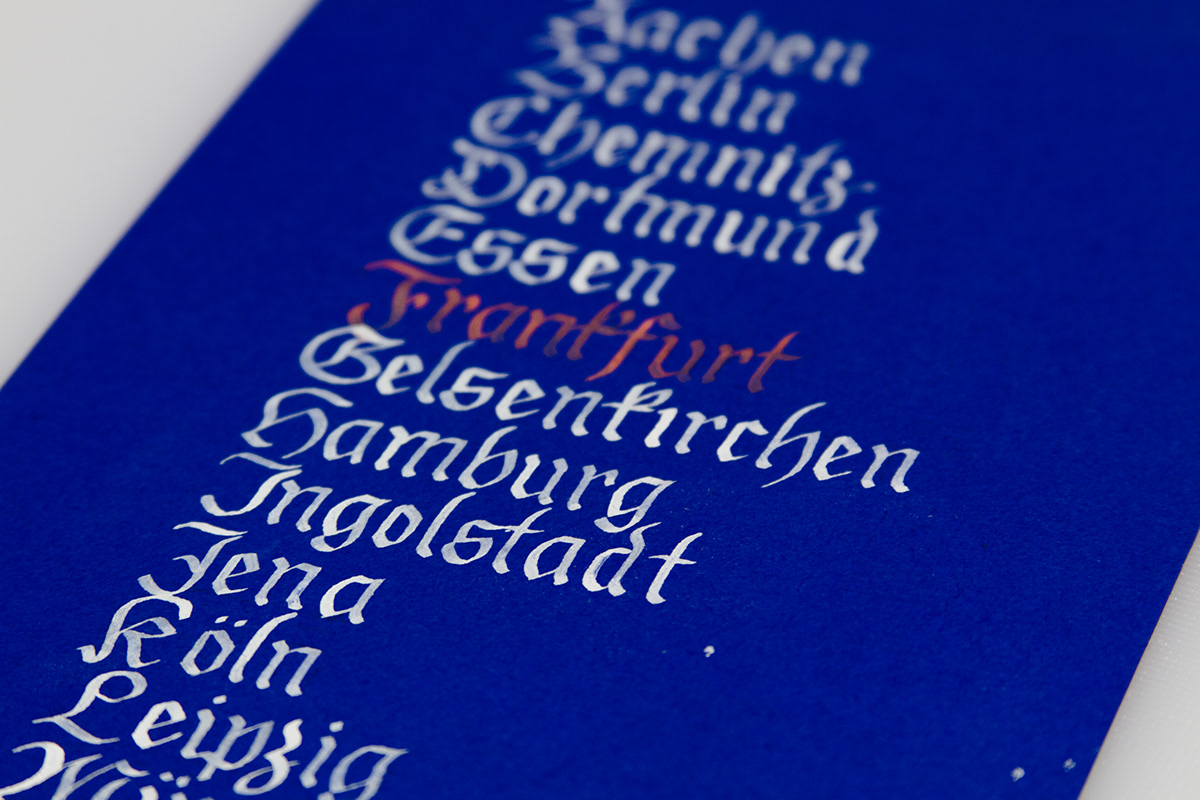 Aachen
Berlin
Chemnitz
Dortmund
Essen
Frankfurt
Gelsenkirchen
Hamburg
Ingolstadt
Jena
Köln
Leipzig